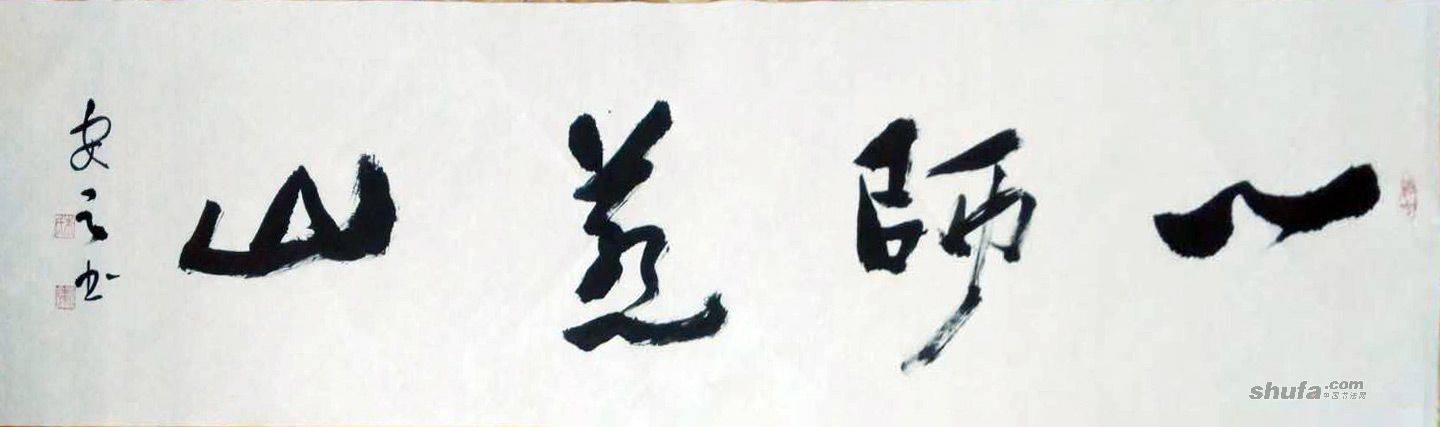 心師慈山
安 书
shufa.com
中国书法网